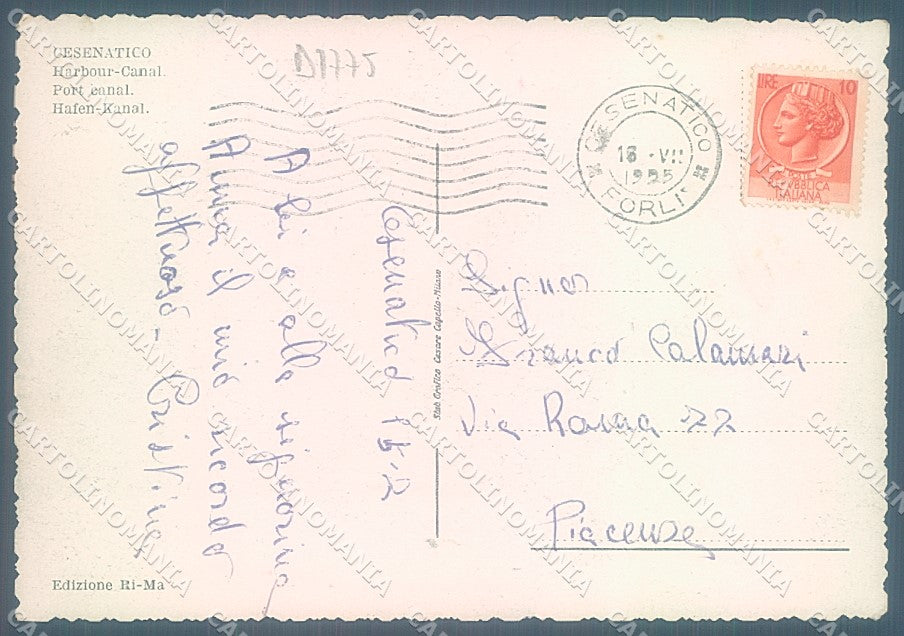 CESENATICO
Harbour-Canal.
Port canal.
Hafen-Kanal.
D1775
CESENATICO
16 · VII
1955
FORLI
LIRE 10
REPUBBLICA
ITALIANA
Cesenatico
A lei e alla signorina
Anna il mio ricordo
affettuoso - Cristina
Stab. Grafico Cesare Capello-Milano
Signor
Franco Calamari
Via Roma 22
Piacenza
Edizione Ri-Ma
CARTOLINOMANIA